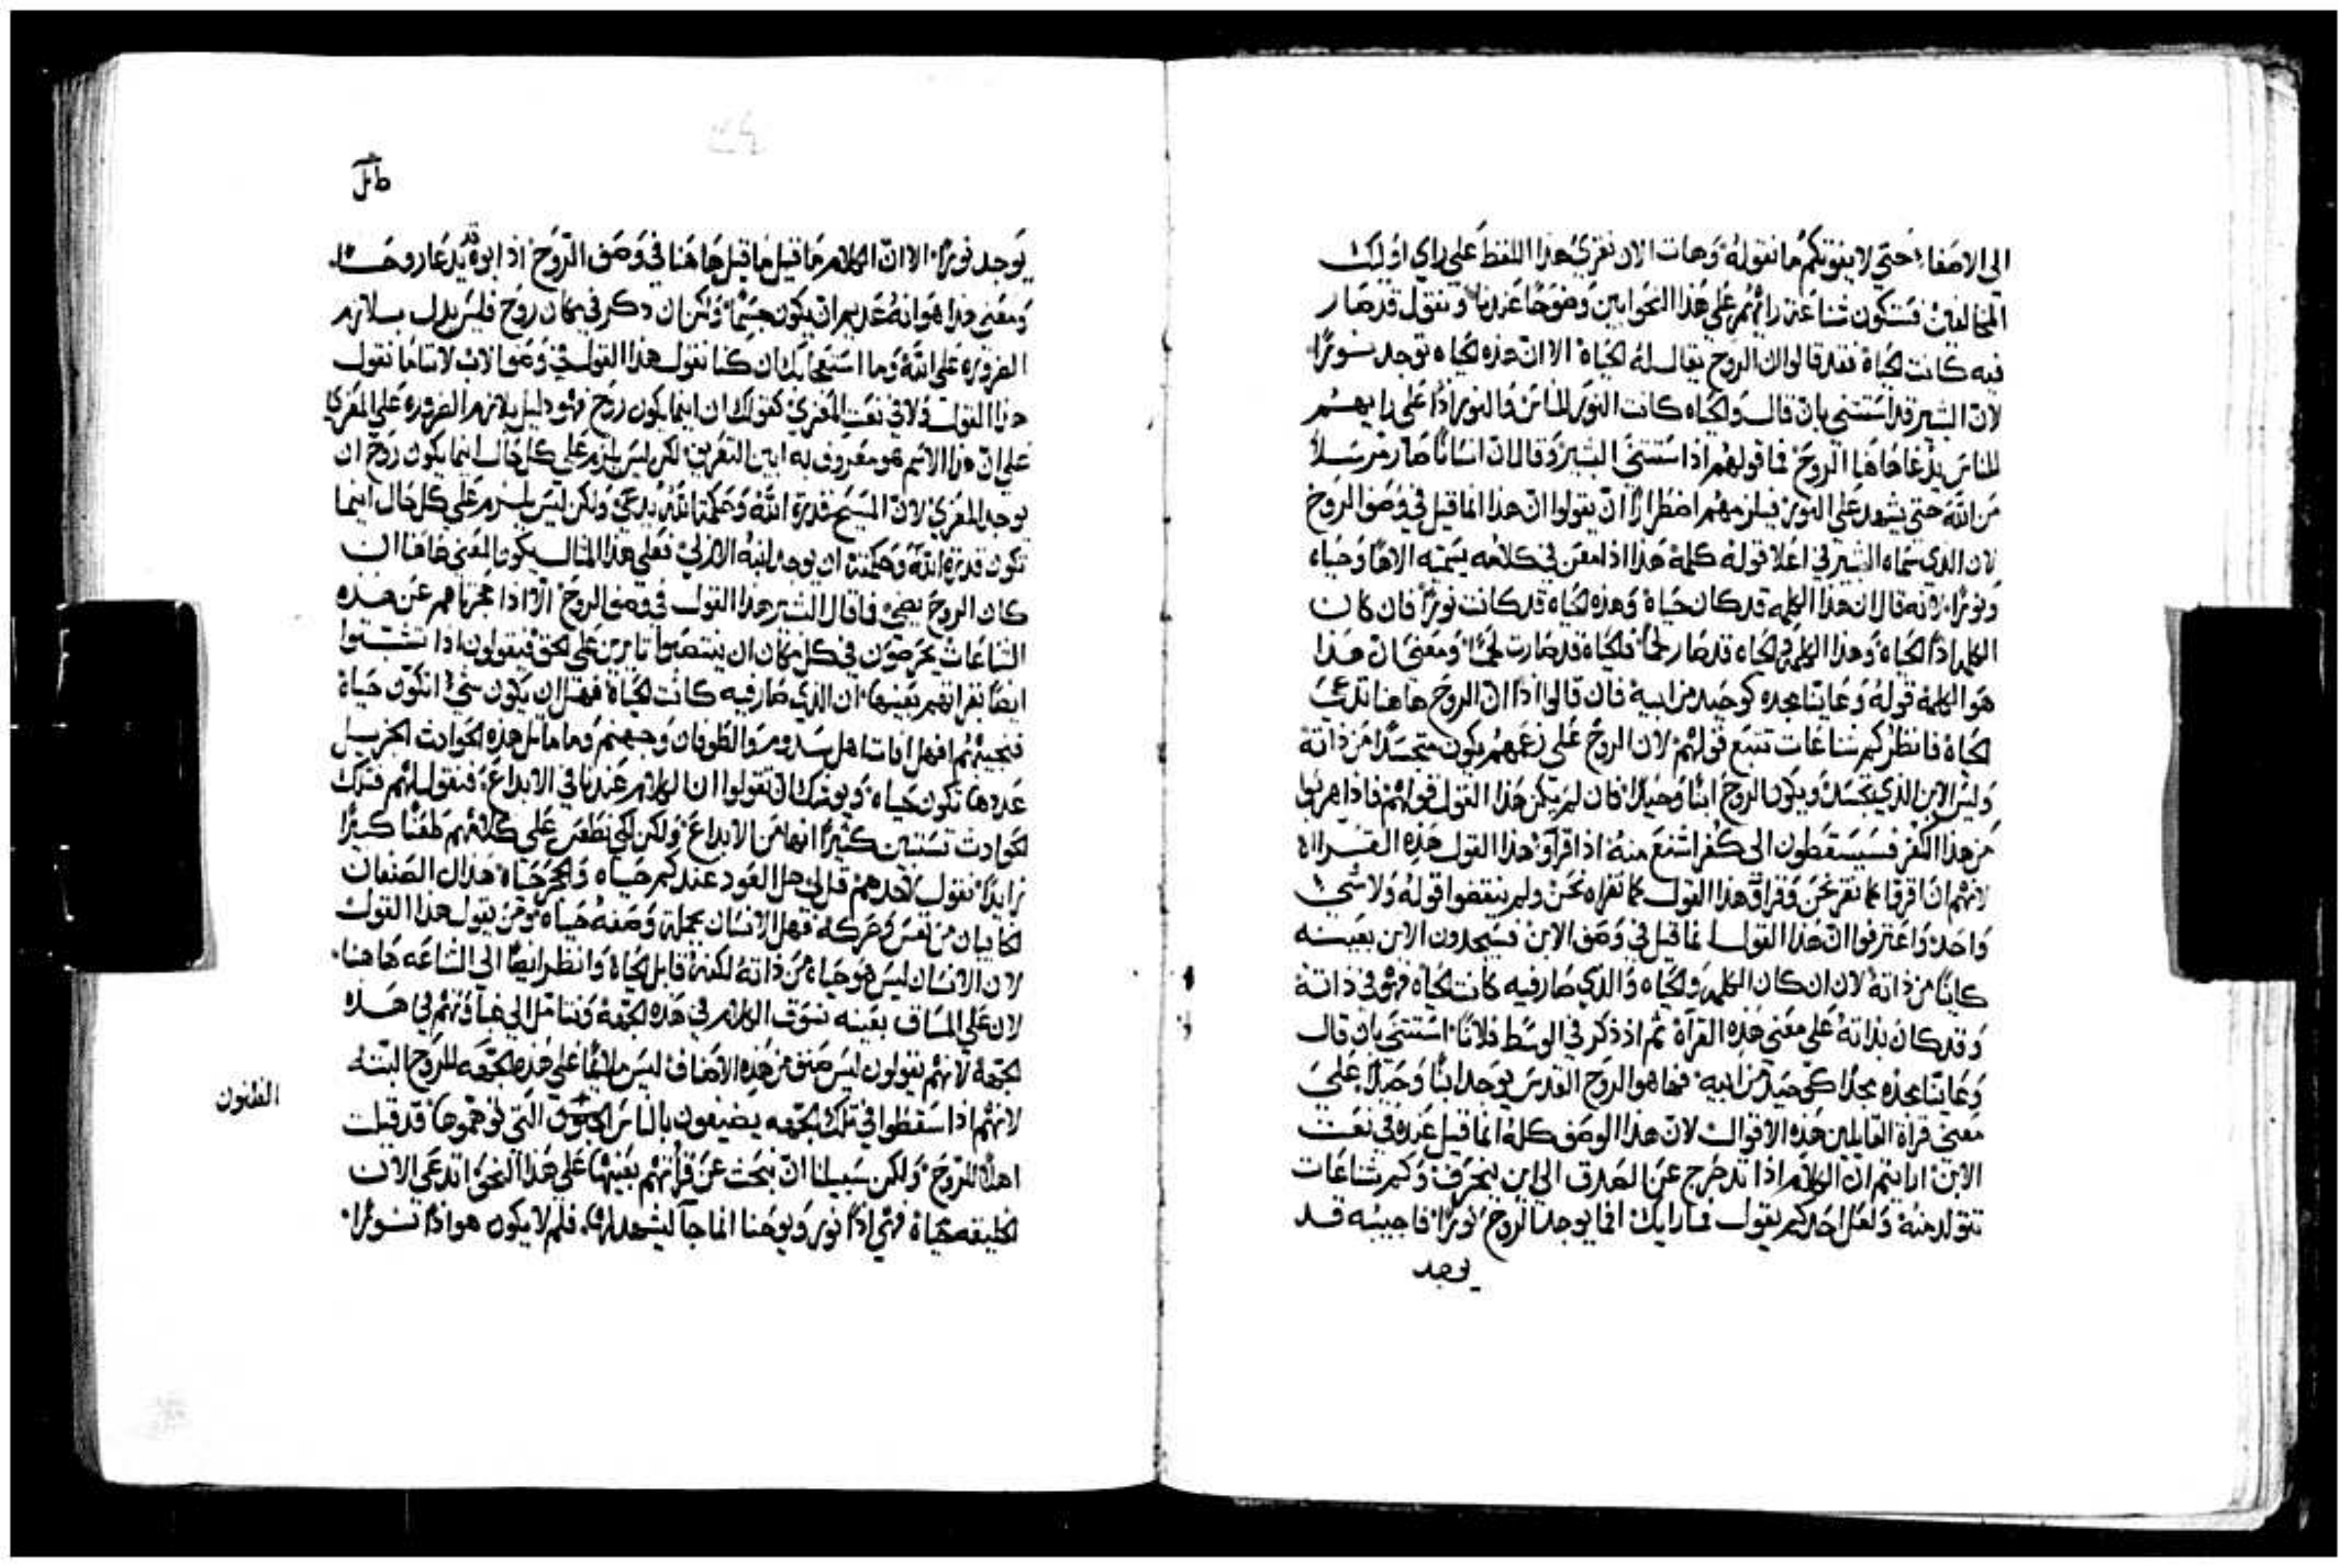 الى الاصغاء حتي لا يفوتكم ما نقوله وهات الان نقري هذا اللفظ علي راي اوليك
المخالفين فستكون شناعة رائهم علي هذا النحو ابين وضوحًا عندنا ونقول قد صار
فيه كانت الحياة فقد قالوا ان الروح يقال له الحياة الا ان هذه الحياه توجد نورًا
لان البشير قد استتني بان قال والحياه كانت النور للناس والنور اذًا علي رايهم
للناس يدعا هاهنا الروح فما قولهم اذا استتني البشير وقال ان انسانًا صار مرسلاً
من الله حتي يشهد علي النور فيلزمهم اضطرارًا ان يقولوا ان هذا انما قيل في وصف الروح
لان الدي سماه البشير في اعلا قوله كلمة هذا اذ امعن في كلامه يسميه الاهًا وحياه
ونورًا لانه قال ان هذا الكلمه قد كان حياة وهذه الحياه قد كانت نورًا فان كان
الكلمه اذًا الحياه وهذا الكلمه والحياه قد صار لحمًا فالحياه قد صارت لحمًا ومعني ان هذا
هو الكلمة قوله وعاينا مجده كوحيد من ابيه فان قالوا اذًا ان الروح هاهنا تدعي
الحياة فانظركم شناعات تتبع قولهم لان الروح علي زعمهم يكون متجسدًا من ذاته
وليس الابن الذي تجسد ويكون الروح ابنًا وحيدًا فان لم يكن هذا القول قولهم فاذا هربوا
من هذا الكفر فسيسقطون الي كفر اشنع منه اذا قراوا هذا القول هذه القرااه
لانهم ان اقرقا بما نقر نحن وقراوا هذا القول كما نقراه نحن ولم ينقضوا قوله ولا شي
واحد واعترفوا ان هذا القول انما قيل في وصف الابن فسيجدون الابن بعينه
كاينًا من ذاته لان ان كان الكلمه والحياه والذي صار فيه كانت الحياه فهو في ذاته
وقد كان بذاته علي معني هذه القرآة ثم اذ ذكر في الوسط فلانًا استتني بان قال
وعاينا مجده مجدًا كوحيد من ابيه فها هو الروح القدس يوجد ابنًا وحيدًا علي
معني قراة القايلين هذه الاقوال لان هذا الوصف كله انما قيل عنده في نعت
الابن ارايتم ان الكلام اذا تدحرج عن الصدق الي اين ينحرف وكم شناعات
تتولد منه ولعل احدكم يقول فما رايك افما يوجد الروح نورًا فاجيبه قد
يوجد
يوجد نورًا الا ان الكلام ما قيل ما قيل هاهنا في وصف الروح اذ ابوه قد يدعا روحًا
ومعني هذا هو انه عديم ان يكون جسمًا ولكن ان ذكر في مكان روح فليس يدل بلازم
الضروره علي الله وما استعجابك ان كنا نقول هذا القول في وصف الاب لاننا ما نقول
هذا القول ولا في نعت المعزي كقولك ان اينما يكون روح فهو دليل بلازم الضروره علي المعزي
علي ان هذا الاسم هو معروف به ابين التعريف لكن ليس يلزم علي كل حال اينما يكون روح ان
يوجد المعزي لان المسيح قدرة الله وحكمة الله يدعي ولكن ليس يلزم علي كل حال اينما
تكون قدرة الله وحكمته ان يوجد ابنه الازلي فعلي هذا المثال يكون المعني هاهنا ان
كان الروح يضي فما قال البشير هذا القول في وصف الروح الا اذا عجزناهم عن هذه
الشناعات يحرصون في كل مكان ان ينتصبوا تايرين علي الحق فيقولون اذا تشبتوا
ايضًا بقراتهم بعينها ان الذي صار فيه كانت الحياة فهل ان يكون شي اتكون حياة
فنجيبهم افهل افات اهل سدوم والطوفان وجهنم وما ماثل هذه الحوادث الجزيل
عددها تكون حياه ويوشك ان تقولوا ان الكلام عندنا في الابداع فنقول لهم فتلك
الحوادث تستبين كثيرًا انها من الابداع ولكن لكي نطعن علي كلامهم طعنًا كثيرًا
زايدًا نقول لاحدهم قل لي هل العود عندكم حياه والحجر حياه هذان الصنفان
الخايبان من نفس وحركه فهل الانسان بجملة وصفه حياه ومن يقول هذا القول
لان الانسان ليس هو حياه من ذاته لكنه قابل الحياة وانظر ايضًا الي الشناعه هاهنا
لان علي المساق بعينه نسوق الكلام في هذه الجهة ونتامل الي هفاوتهم في هذه
الجهة لانهم يقولون ليس صنف من هذه الاصناف ليس ملايمًا علي هذه الجهه للروح البتة
لانهم اذا سقطوا في تلك الجهه يضيفون بالناس الحقوق التي توهموها قد قيلت
اهلاً للروح ولكن سبيلنا ان نبحث عن قراتهم بعينها علي هذا النحو اتدعي الان
الخليقه حياة فهي اذًا نور ويوحنا انما جآ ليشهد لها فلم لا يكون هو اذًا نورًا
الظنون